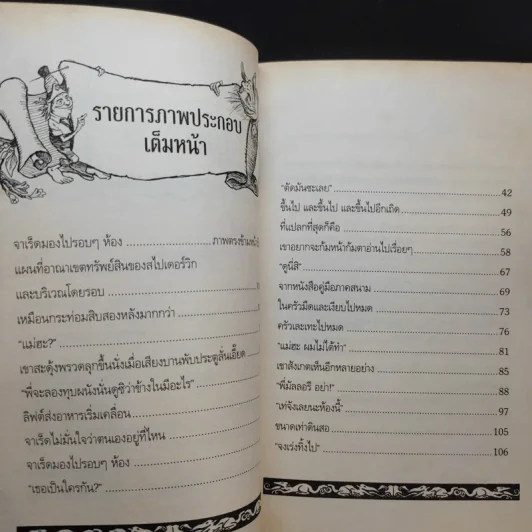 รายการภาพประกอบ
เต็มหน้า
จาเร็ดมองไปรอบๆ ห้อง ................ ภาพตรงข้ามหน้า
แผนที่อาณาเขตทรัพย์สินของสไปเดอร์วิก
และบริเวณโดยรอบ
เหมือนกระท่อมสิบสองหลังมากกว่า
"แม่ฮะ?"
เขาสะดุ้งพรวดลุกขึ้นนั่งเมื่อเสียงบานพับประตูลั่นเอี๊ยด
"พี่จะลองทุบผนังนั่นดูซิว่าข้างในมีอะไร"
ลิฟต์ส่งอาหารเริ่มเคลื่อน
จาเร็ดไม่มั่นใจว่าตนเองอยู่ที่ไหน
จาเร็ดมองไปรอบๆ ห้อง
"เธอเป็นใครกัน?"
"ตัดมันซะเลย" 42
ขึ้นไป และขึ้นไป และขึ้นไปอีกเถิด 49
ที่แปลกที่สุดก็คือ 56
เขาอยากจะก้มหน้าก้มตาอ่านไปเรื่อยๆ 58
"ดูนี่สิ" 67
จากหนังสือคู่มือภาคสนาม 69
ในครัวมืดและเงียบไปหมด 73
ครัวเละเทะไปหมด 76
"แม่ฮะ ผมไม่ได้ทำ" 81
เขาสังเกตเห็นอีกหลายอย่าง 85
"พี่มัลลอรี อย่า!" 88
"เท่จังเลยนะห้องนี้" 97
ขนาดเท่าดินสอ 105
"จงเร่งทิ้งไป" 106